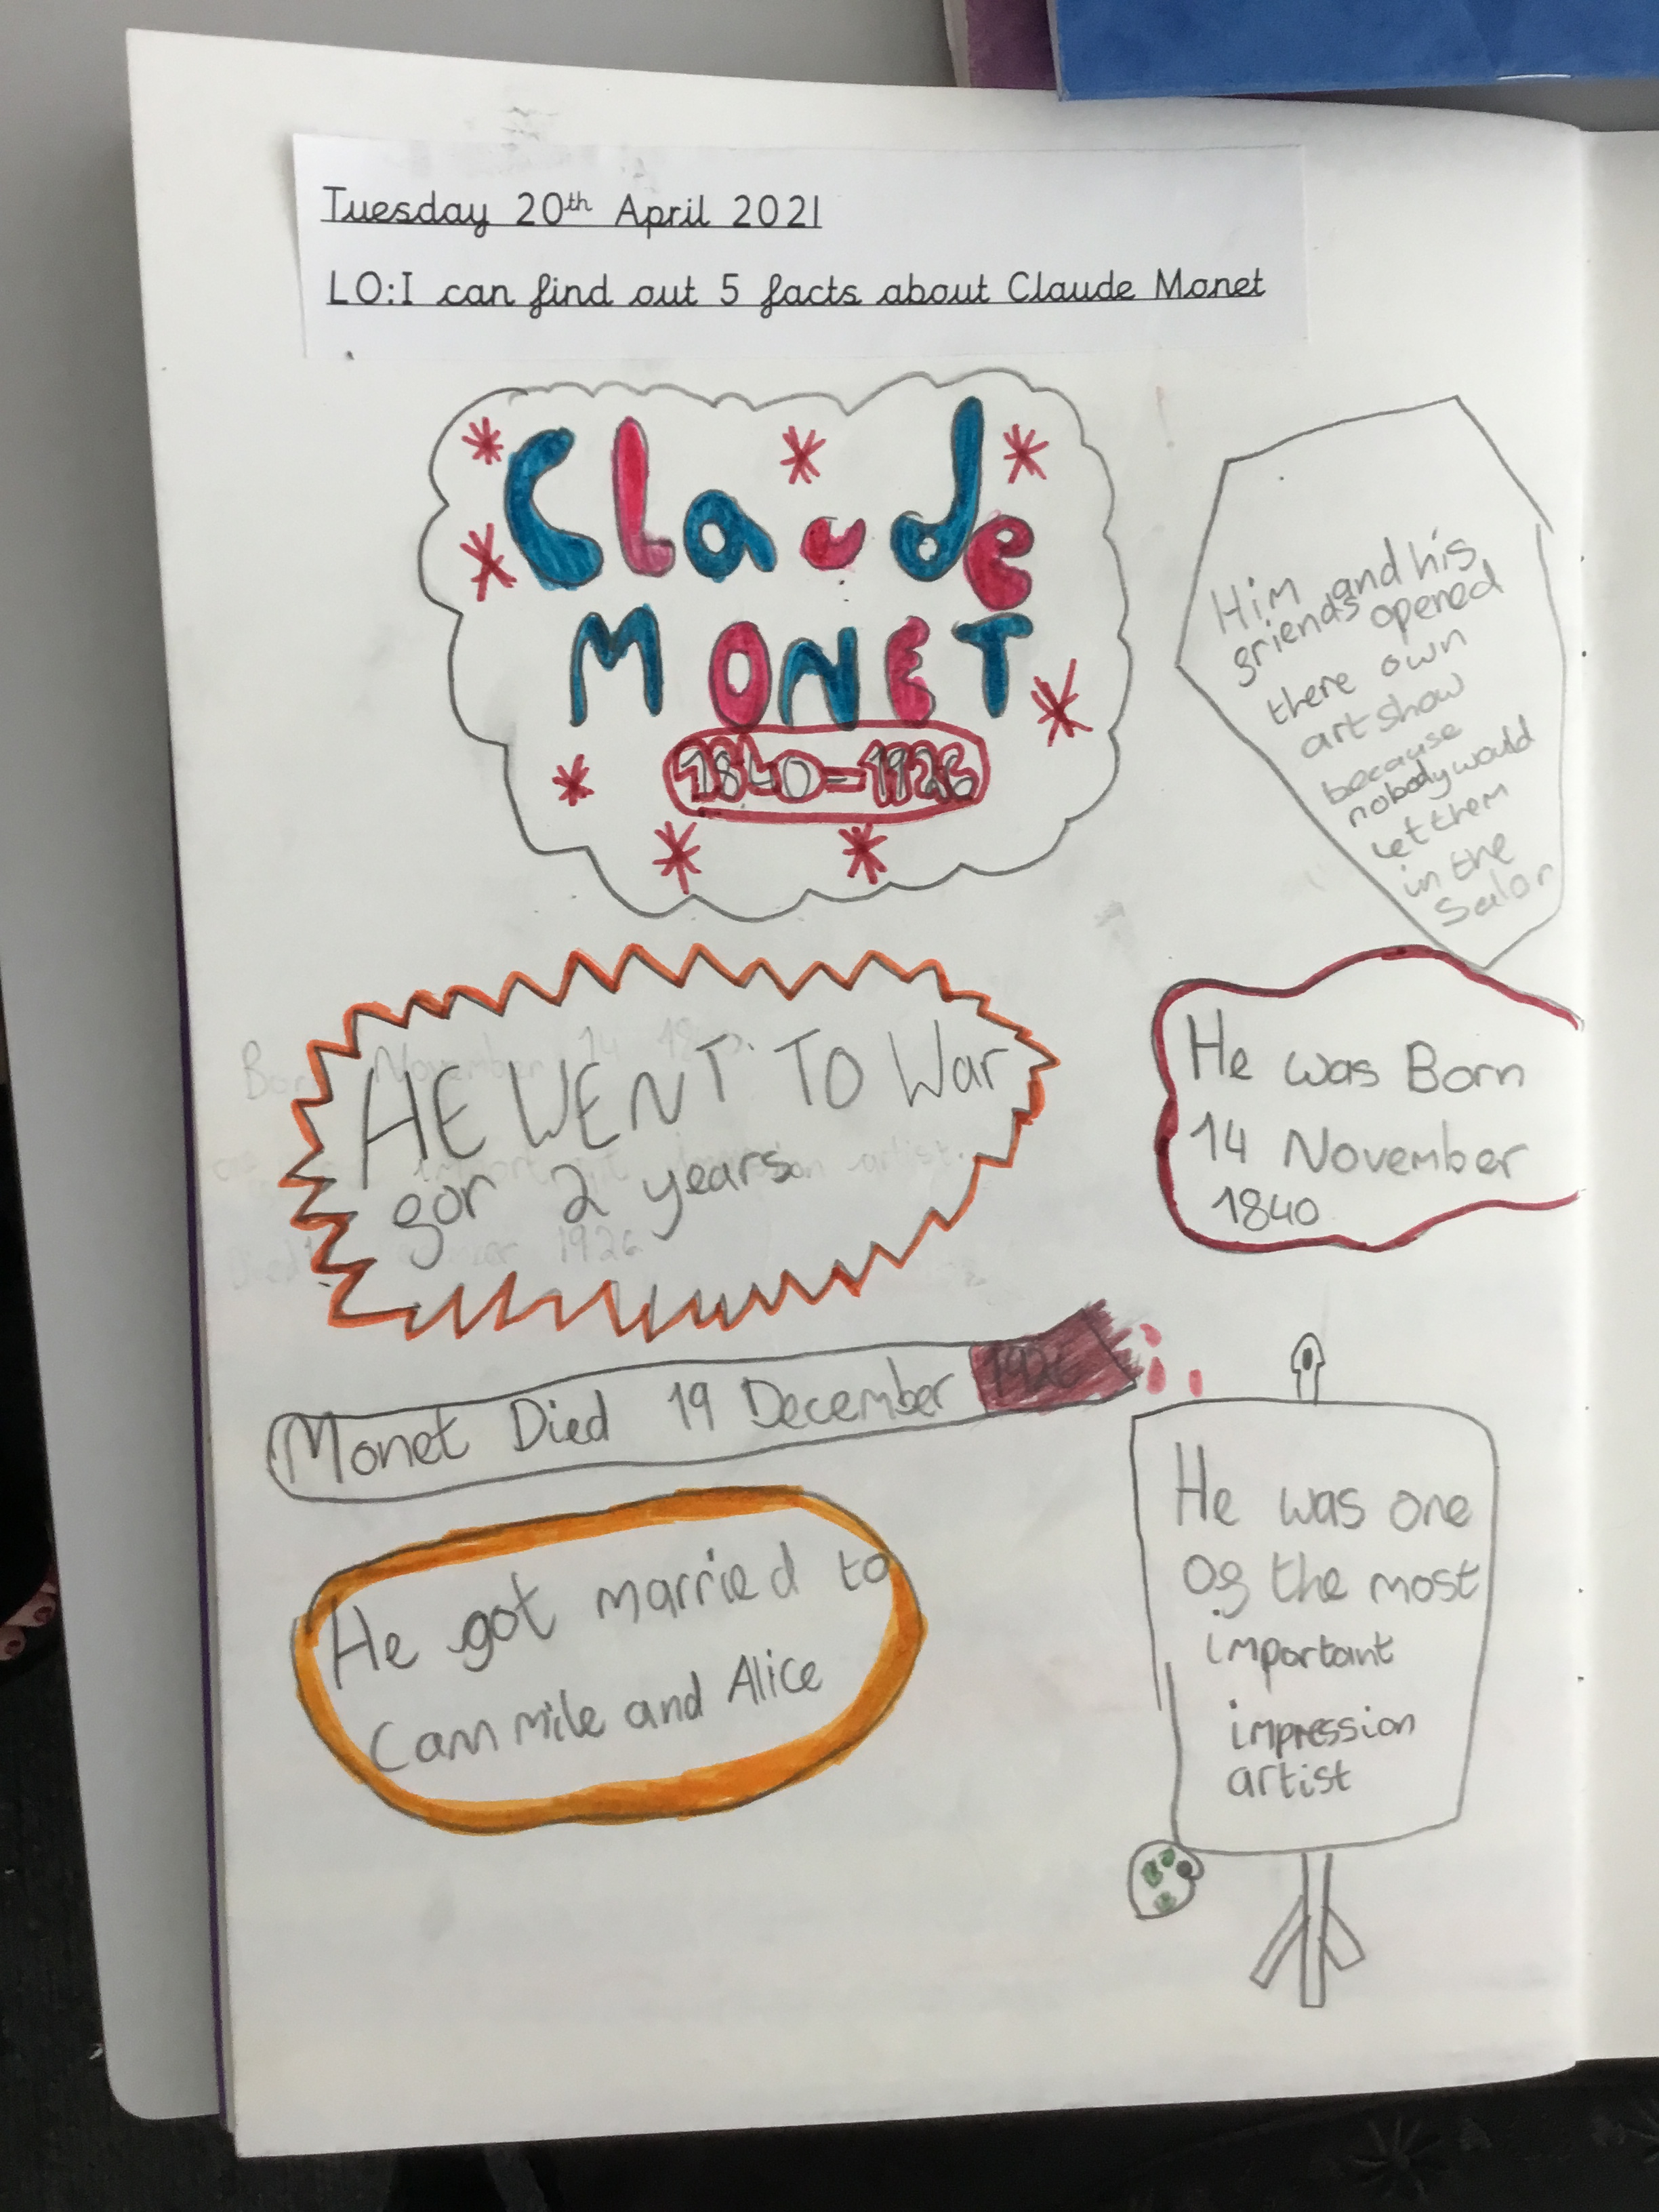 Tuesday 20th April 2021
LO:I can find out 5 facts about Claude Monet
Claude
MONET
1840-1926
Him and his
friends opened
there own
art show
because
nobody would
let them
in the
Salon
HE WENT TO War
for 2 years
He was Born
14 November
1840
Monet Died 19 December 1926
He got married to
Cammile and Alice
He was one
of the most
important
impression
artist